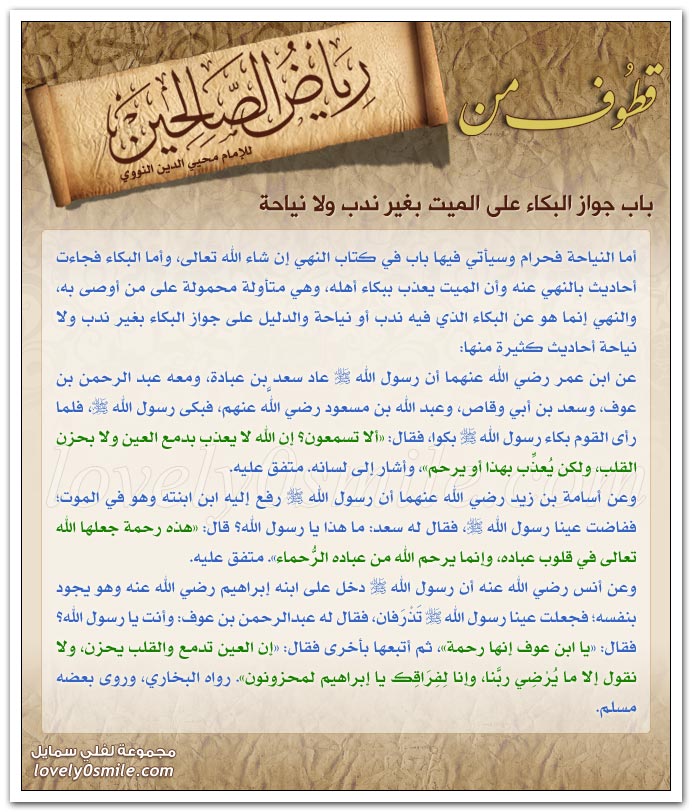 قطوف من
رياض الصالحين
للإمام محيي الدين النووي
باب جواز البكاء على الميت بغير ندب ولا نياحة
أما النياحة فحرام وسيأتي فيها باب في كتاب النهي إن شاء الله تعالى، وأما البكاء فجاءت
أحاديث بالنهي عنه وأن الميت يعذب ببكاء أهله، وهي متأولة محمولة على من أوصى به،
والنهي إنما هو عن البكاء الذي فيه ندب أو نياحة والدليل على جواز البكاء بغير ندب ولا
نياحة أحاديث كثيرة منها:
عن ابن عمر رضي الله عنهما أن رسول الله ﷺ عاد سعد بن عبادة، ومعه عبد الرحمن بن
عوف، وسعد بن أبي وقاص، وعبد الله بن مسعود رضي الله عنهم، فبكى رسول الله ﷺ، فلما
رأى القوم بكاء رسول الله ﷺ بكوا، فقال: «ألا تسمعون؟ إن الله لا يعذب بدمع العين ولا بحزن
القلب، ولكن يُعذِّب بهذا أو يرحم»، وأشار إلى لسانه. متفق عليه.
وعن أسامة بن زيد رضي الله عنهما أن رسول الله ﷺ رفع إليه ابن ابنته وهو في الموت؛
ففاضت عينا رسول الله ﷺ، فقال له سعد: ما هذا يا رسول الله؟ قال: «هذه رحمة جعلها الله
تعالى في قلوب عباده، وإنما يرحم الله من عباده الرُّحماء». متفق عليه.
وعن أنس رضي الله عنه أن رسول الله ﷺ دخل على ابنه إبراهيم رضي الله عنه وهو يجود
بنفسه؛ فجعلت عينا رسول الله ﷺ تَذْرَفان، فقال له عبدالرحمن بن عوف: وأنت يا رسول الله؟
فقال: «يا ابن عوف إنها رحمة»، ثم أتبعها بأخرى فقال: «إن العين تدمع والقلب يحزن، ولا
نقول إلا ما يُرْضِي ربَّنا، وإنا لِفِرَاقِكَ يا إبراهيم لمحزونون». رواه البخاري، وروى بعضه
مسلم.
مجموعة لفلي سمايل
lovely0smile.com
lovely0smile.com